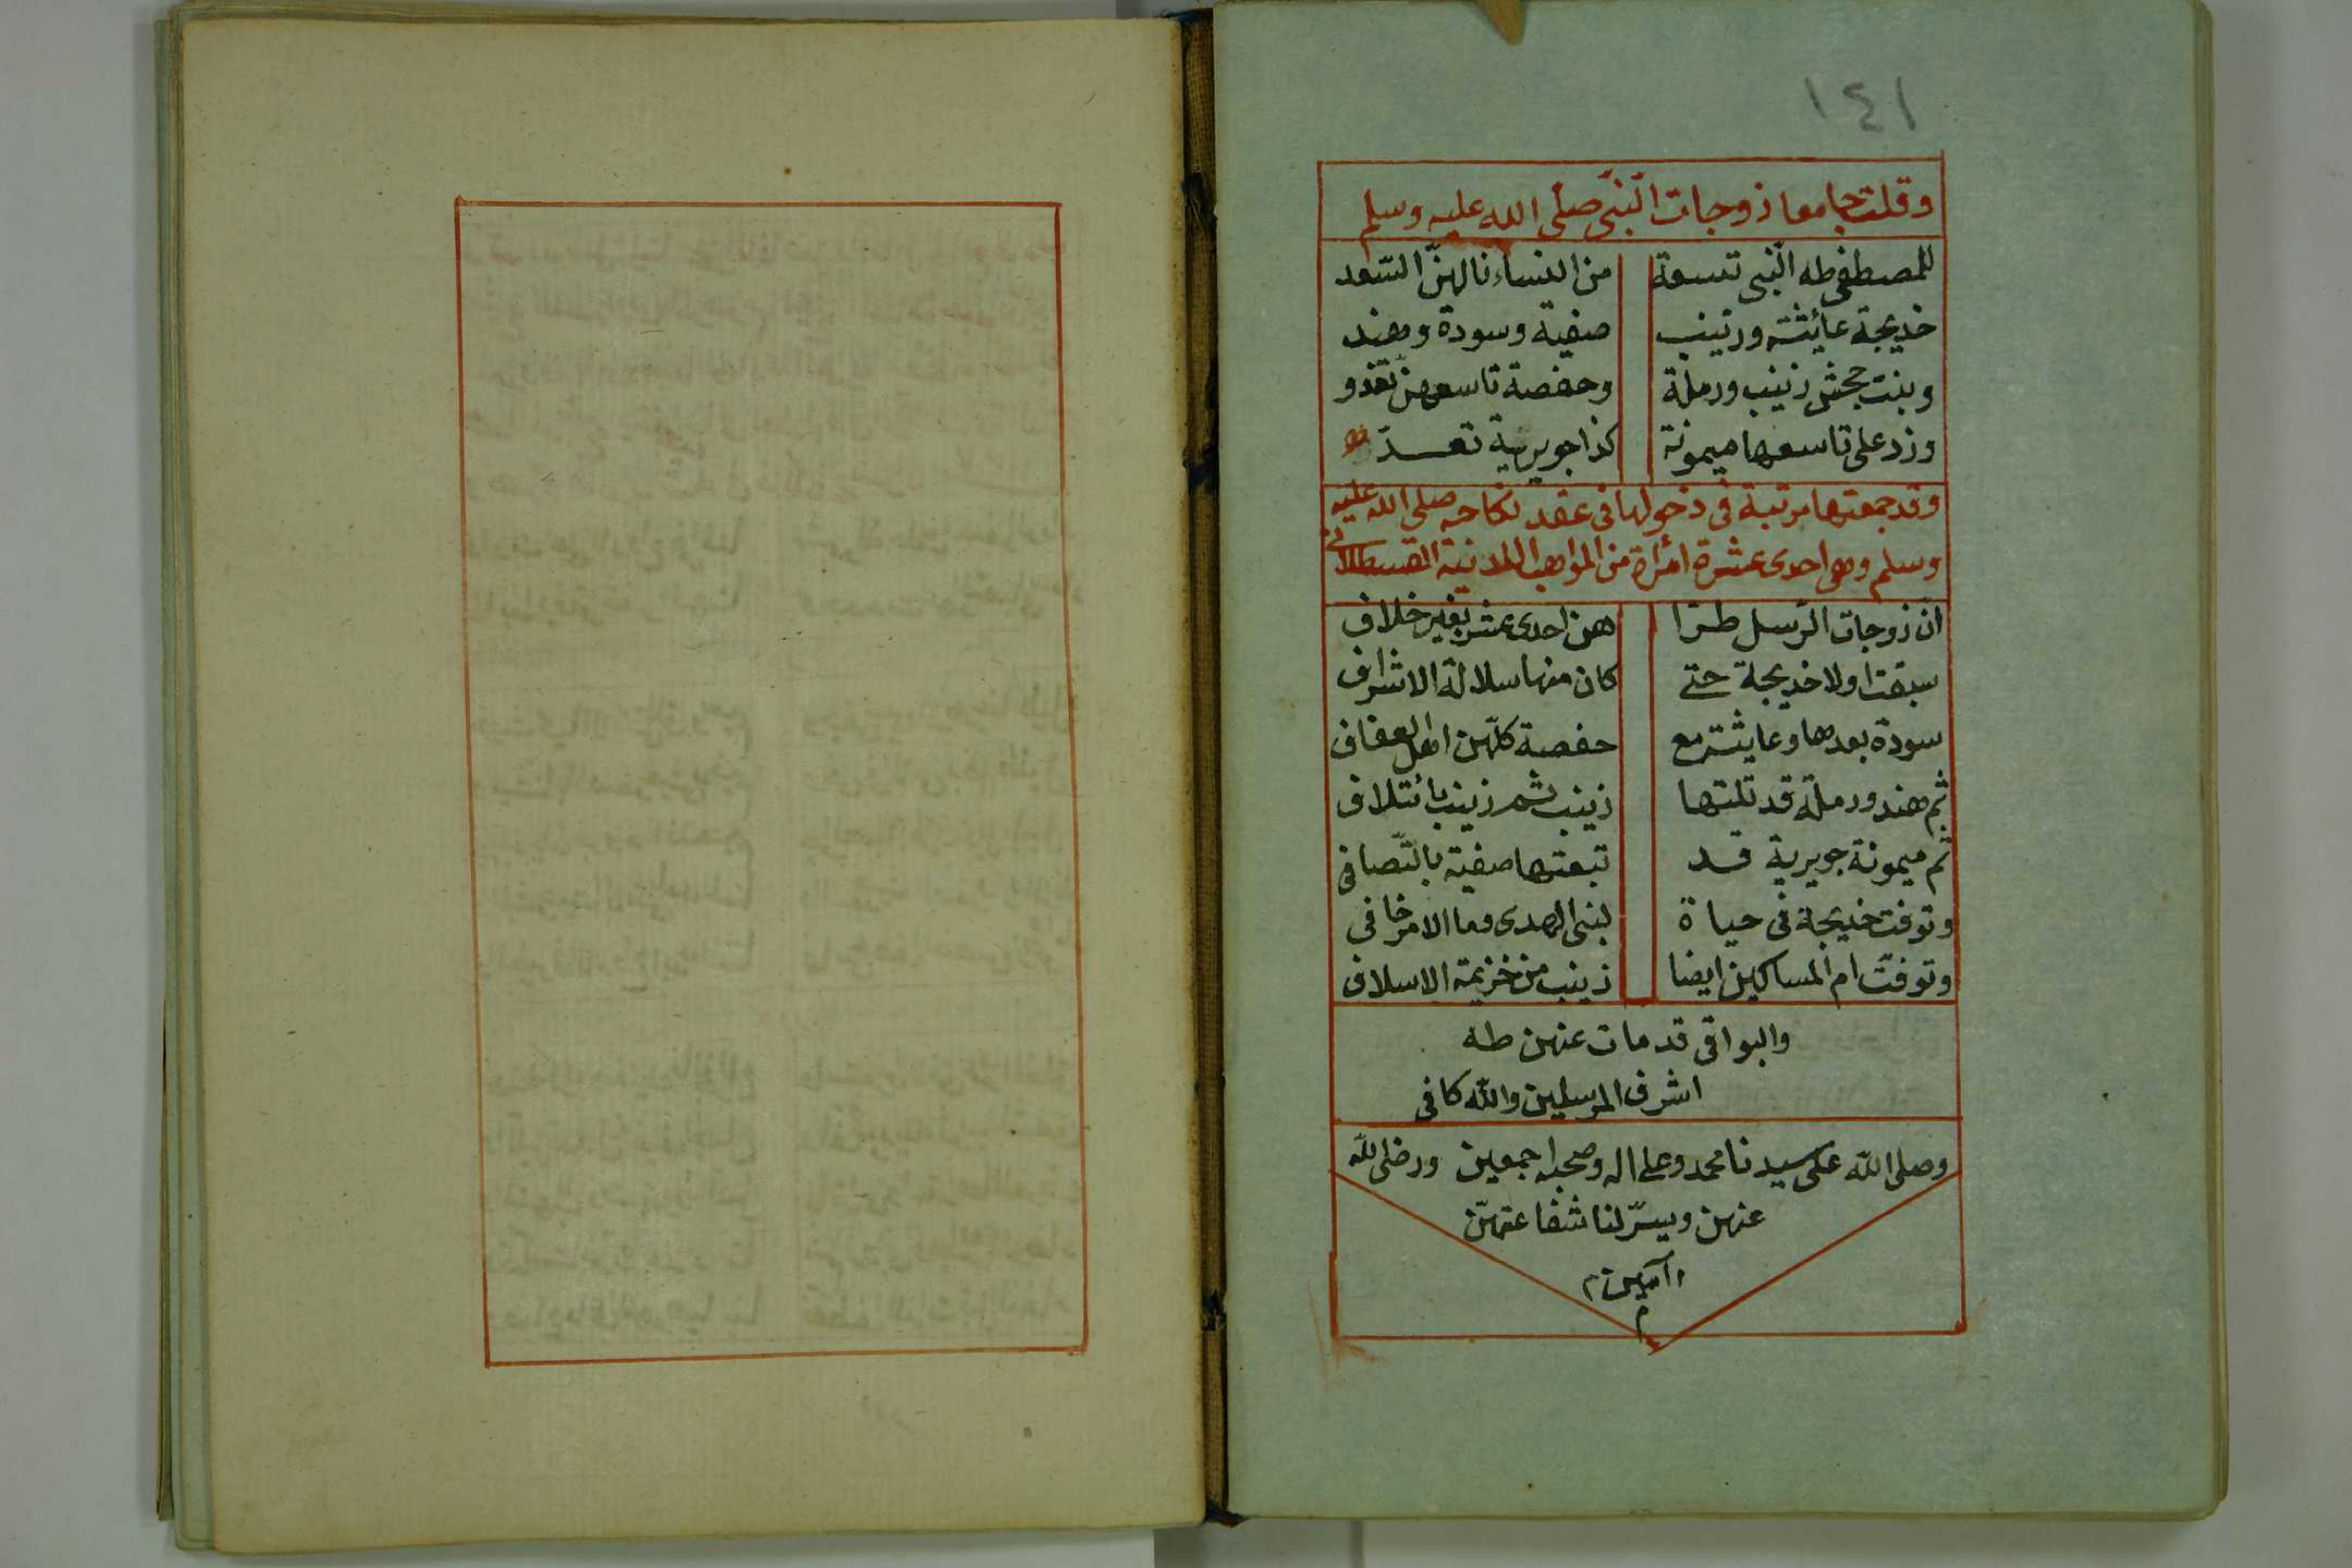 ١٤١
وقلت جامعا زوجات النّبىّ صلى الله عليه وسلم
للمصطفى طه النّبى تسعة من النساء نالهنّ السّعد
خديجة عائشة وزينب صفية وسودة وهند
وبنت جحش زينب ورملة وحفصة تاسعهن تغدو
وزد على تاسعها ميمونة كذا جويرية تعـــدّ
وقد جمعتها مرتبة فى دخولها فى عقد نكاحه صلى الله عليه
وسلم وهى احدى عشرة امرأة من المواهب اللدنية القسطلانى
انّ زوجات الرّسل طـرّا هن احدى عشر بغير خلاف
سبقت اولا خديجة حتى كان منها سلالة الاشراف
سودة بعدها وعايشة مع حفصة كلّهن اهل العفاف
ثم هند ورملة قد تلتها زينب ثم زينب بائتلاف
ثم ميمونة جويرية قــد تبعتها صفية بالتّصافى
وتوفت خديجة فى حياة لنبى الهدى وما الامر خافى
وتوفت ام المساكين ايضا زينب من خزيمة الاسلاف
والبواقى قد مات عنهن طه
اشرف المرسلين والله كافى
وصلى الله على سيدنا محمد وعلى اله وصحبه اجمعين ورضى الله
عنهن ويسّر لنا شفاعتهنّ
آمين م
م